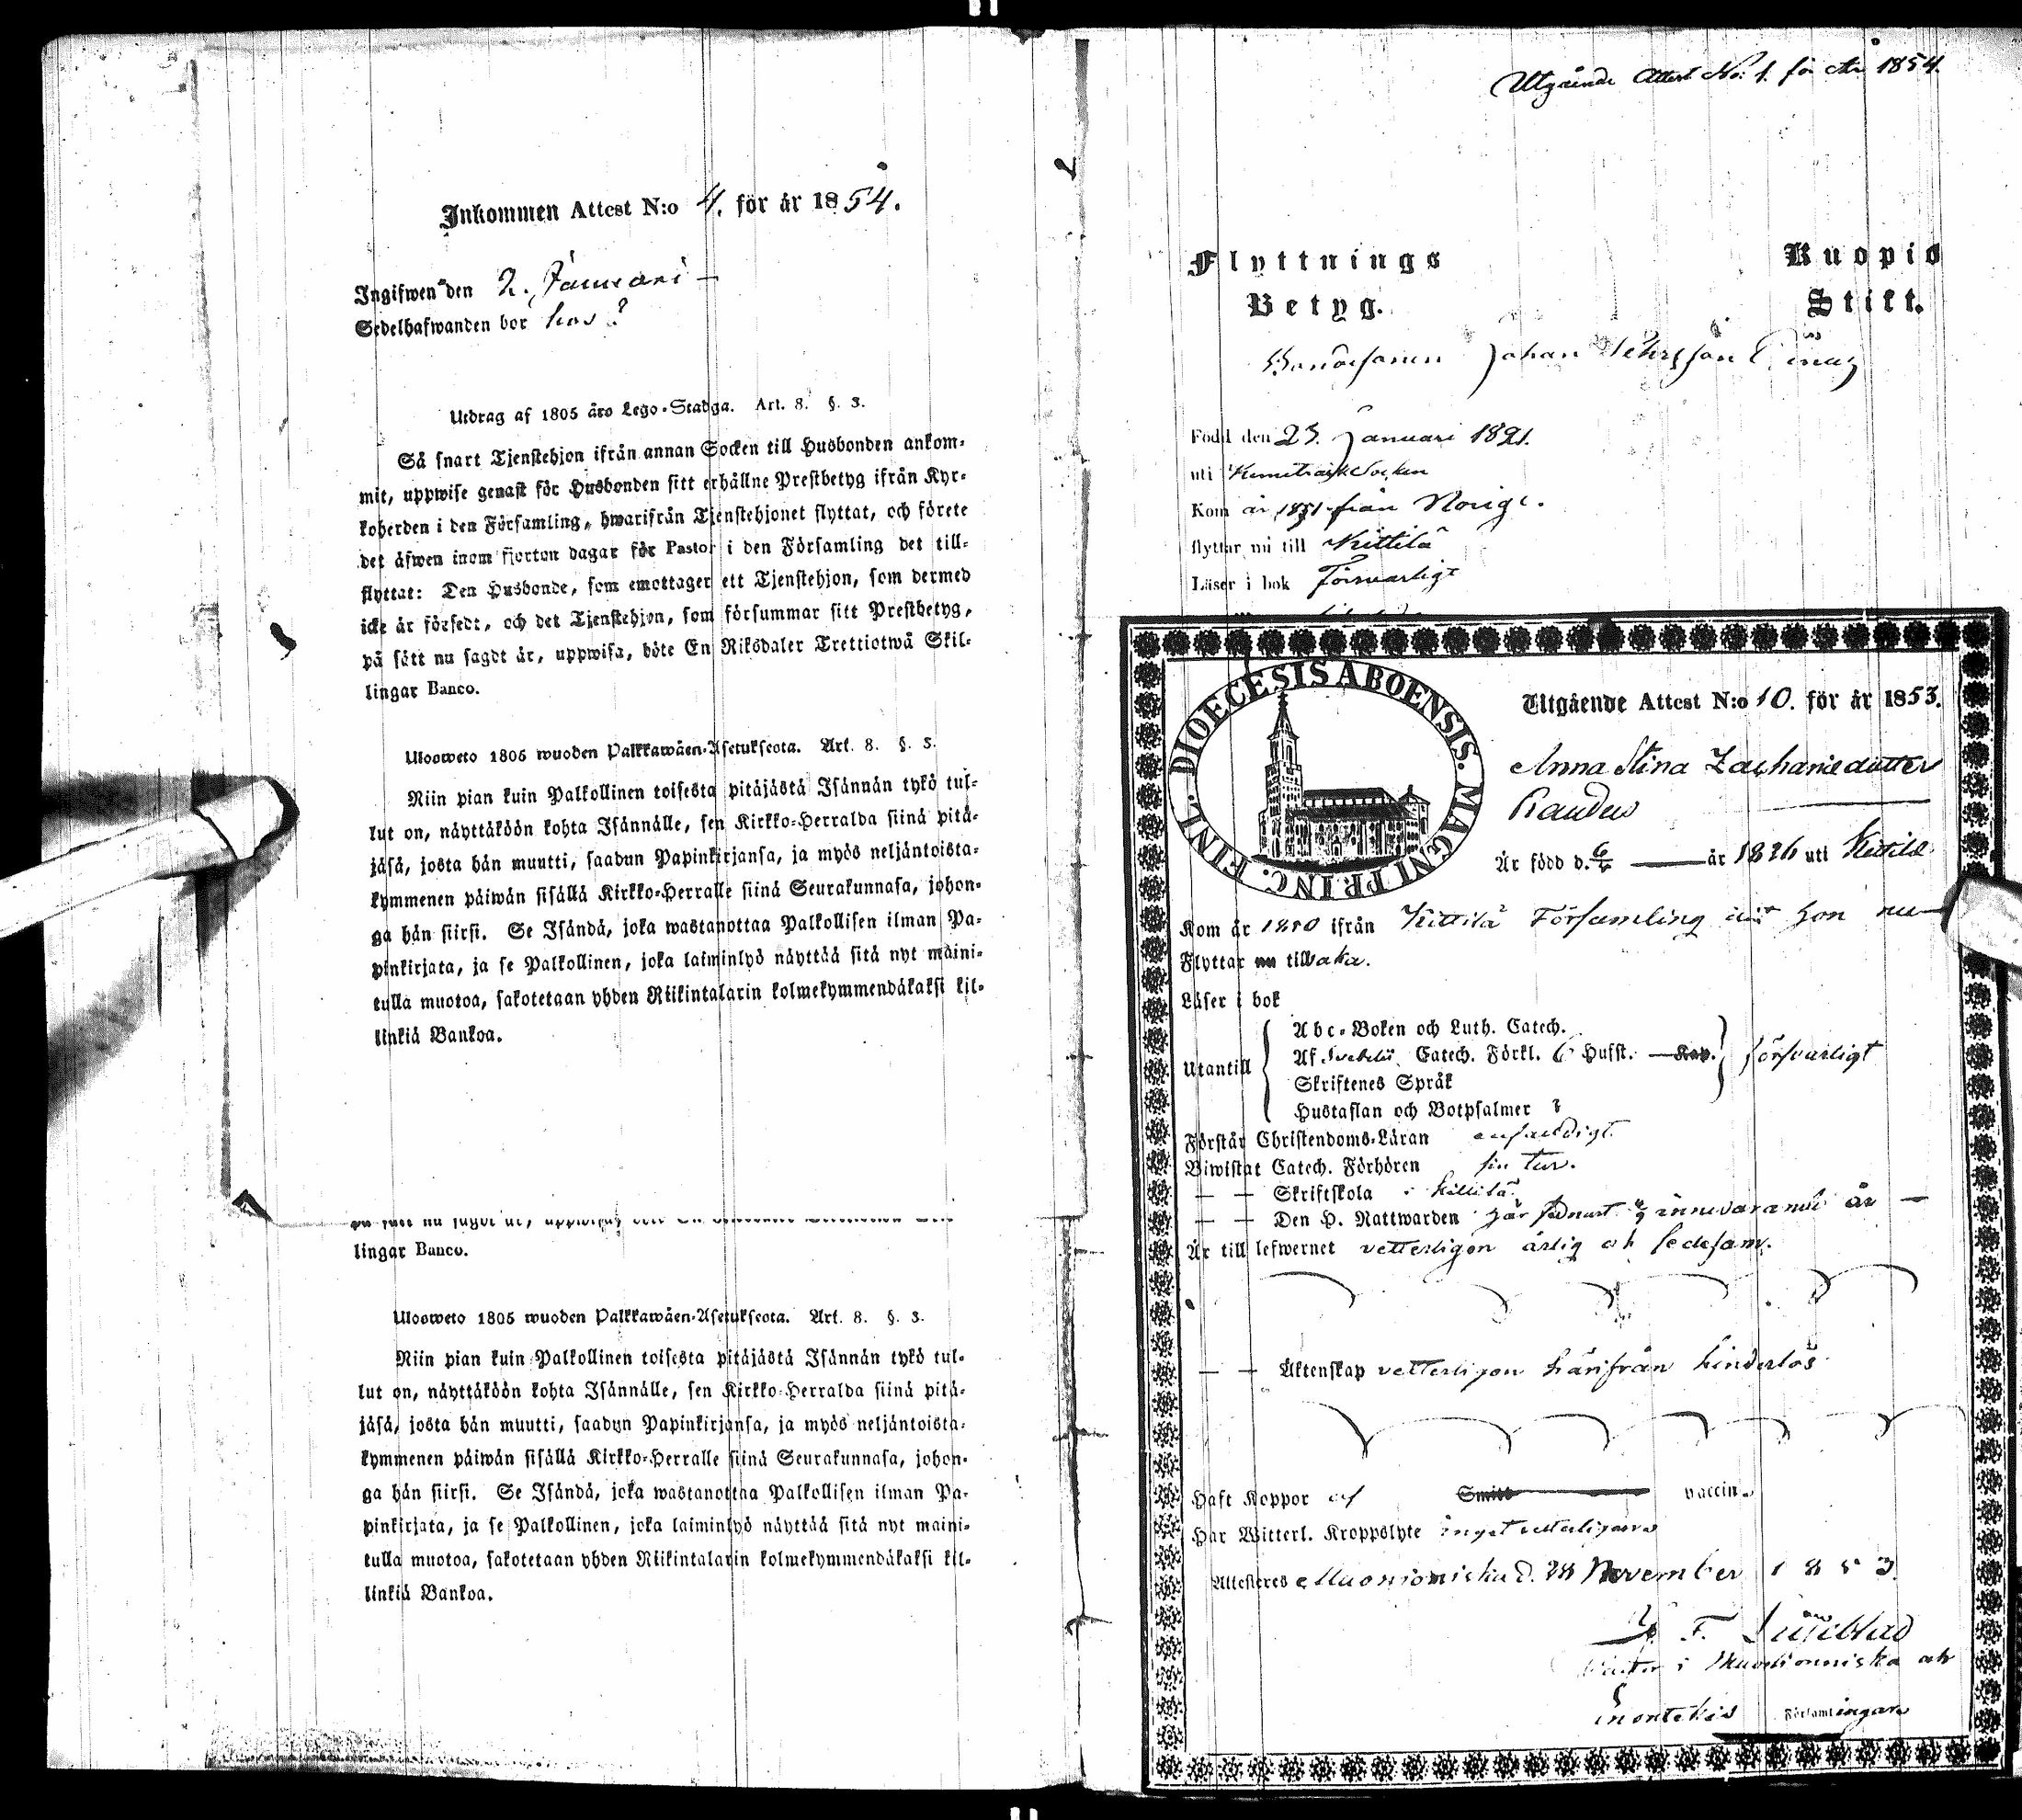 Inkommen Attest N:o 4. för år 1854.
Ingifwen den 2. Januari –
Sedelhafwanden bor hos?
Utdrag af 1805 åro Lego-Stadga. Art. 8. §. 3.
Så snart Tjenstehjon ifrån annan Socken till Husbonden ankom-
mit, uppwise genast för Husbonden sitt erhållne Prestbetyg ifrån Kyr-
koherden i den Församling, hwarifrån Tjenstehjonet flyttat, och förete
det äfwen inom fjorton dagar för Pastor i den Församling det till-
flyttat: Den Husbonde, som emottager ett Tjenstehjon, som dermed
icke är försedt, och det Tjenstehjon, som försummar sitt Prestbetyg,
på sätt nu sagdt är, uppwisa, böte En Riksdaler Trettiotwå Skil-
lingar Banco.
Ulosweto 1805 wuoden Palkkawäen-Asetuksesta. Art. 8. §. 3.
Niin pian kuin Palkollinen toisesta pitäjästä Isännän tykö tul-
lut on, näyttäköön kohta Isännälle, sen Kirkko-Herralda siinä pitä-
jäsä, josta hän muutti, saadun Papinkirjansa, ja myös neljäntoista-
kymmenen päiwän sisällä Kirkko-Herralle siinä Seurakunnasa, johon-
ga hän siirsi. Se Isändä, joka wastanottaa Palkollisen ilman Pa-
pinkirjata, ja se Palkollinen, joka laiminlyö näyttää sitä nyt maini-
tulla muotoa, sakotetaan yhden Riikintalarin kolmekymmendäkaksi kil-
linkiä Bankoa.
lingar Banco.
Ulosweto 1805 wuoden Palkkawäen-Asetuksesta. Art. 8. §. 3.
Niin pian kuin Palkollinen toisesta pitäjästä Isännän tykö tul-
lut on, näyttäköön kohta Isännälle, sen Kirkko-Herralda siinä pitä-
jäsä, josta hän muutti, saadun Papinkirjansa, ja myös neljäntoista-
kymmenen päiwän sisällä Kirkko-Herralle siinä Seurakunnasa, johon-
ga hän siirsi. Se Isändä, joka wastanottaa Palkollisen ilman Pa-
pinkirjata, ja se Palkollinen, joka laiminlyö näyttää sitä nyt maini-
tulla muotoa, sakotetaan yhden Riikintalarin kolmekymmendäkaksi kil-
linkiä Bankoa.
Utgående Attest No: 1. för År 1854.
Flyttnings Kuopio
Betyg. Stift.
Bondesonen Johan Pehrsson
Född den 23. Januari 1821.
uti Kemiträsk Socken
Kom år från Norige.
flyttar nu till Kittilä
Läser i bok Försvarligt
DIOECESIS ABOENSIS. MAGNI PRINC. FINL.
Utgående Attest N:o 10. för år 1853.
Anna Stina Zachariedotter
Raudus
Är född d. 6/4 — år 1826 uti Kittilä
Kom år 1850 ifrån Kittilä Församling dit hon nu
Flyttar nu tillbaka.
Läser i bok
Utantill
Abc-Boken och Luth. Catech.
Af Svebelii Catech. Förkl. 6 Hufst. — Kap. försvarligt
Skriftenes Språk
Hustaflan och Botpsalmer ?
Förstår Christendoms-Läran enfaldigt.
Biwistat Catech. Förhören sin tur.
— — Skriftskola i Kittilä.
— — Den H. Nattwarden här sednast innevarande år —
Är till lefwernet vetterligen ärlig och sedesam.
— — Äktenskap vetterligen härifrån hinderlös
Haft Koppor af Smitt vaccin.
Har Witterl. Kroppslyte inget vetterligen
Attesteres Muonioniska d. 28 November 1853.
F. Liljeblad
Pastor i Muonionniska och
Enontekis Församlingar